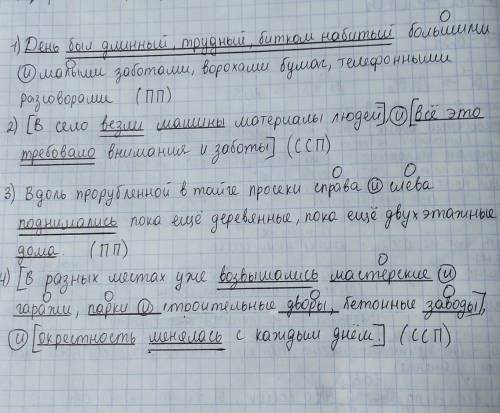 1) День был длинный, трудный, битком набитый большими
и малыми заботами, ворохами бумаг, телефонными
разговорами (ПП)
2) [В село везли машины материалы людей], и [всё это
требовало внимания и заботы] (ССП)
3) Вдоль прорубленной в тайге просеки справа и слева
поднимались пока ещё деревянные, пока ещё двухэтажные
дома. (ПП)
4) [В разных местах уже возвышались мастерские и
гаражи, парки и строительные дворы, бетонные заводы],
и [окрестность менялась с каждым днём.] (ССП)